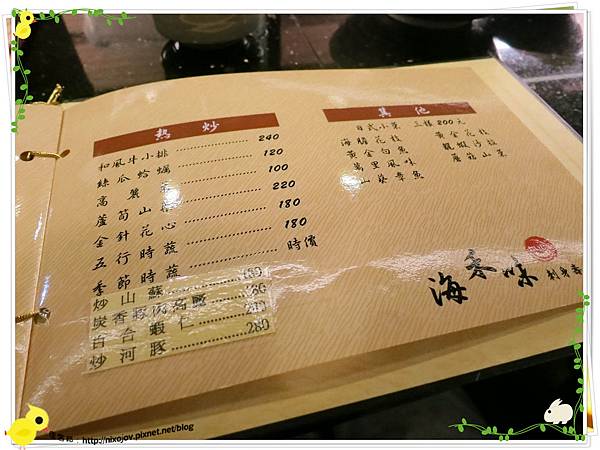 熱炒
和風牛小排 240
絲瓜蛤蠣 120
高麗菜 100
蘆筍山 220
金針花心 180
五行時蔬 180
季節時蔬 時價
炒山蘇 180
炭香豚肉 180
百合蝦仁 210
炒河豚 280
其他
日式小菜 三樣200元
海膽花枝 黃金花枝
黃金白魚 龍蝦沙拉
萬里風味
山葵章魚
海冬味
http://nixojov.pixnet.net/blog